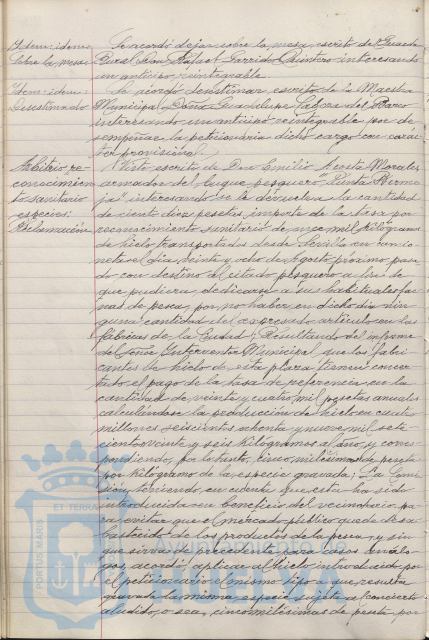 Idem: idem
Sobre la mesa
Se acordó dejar sobre la mesa, escrito del Guarda
Rural Don Rafael Garrido Quintero interesando
un anticipo reintegrable.
Idem: idem:
Desestimado
Se acordó desestimar escrito de la Maestra
Municipal Doña Guadalupe del Barco
interesando un anticipo reintegrable por de-
sempeñar la peticionaria dicho cargo con carác-
ter provisional.
Arbitrio re-
conocimien-
to sanitario
especies:
Reclamación
Visto escrito de Don Emilio Acosta Morales
armador del buque pesquero "Punta Berme-
ja" interesando se le devuelva la cantidad
de ciento diez pesetas, importe de la tasa por
reconocimiento sanitario de once mil kilógramos
de hielo transportados desde Sevilla en camio-
neta el día veinte y ocho de Agosto próximo pasa-
do con destino al citado pesquero a fin de
que pudiera dedicarse a sus habituales fae-
nas de pesca, por no haber en dicho día nin-
guna cantidad del expresado artículo en las
fábricas de la Ciudad; Resultando del informe
del Señor Interventor Municipal que los fabri-
cantes de hielo de esta plaza tienen concer-
tado el pago de la tasa de referencia en la
cantidad de veinte y cuatro mil pesetas anuales
calculándose la producción de hielo en cuatro
millones seiscientos ochenta y nueve mil sete-
cientos veinte y seis kilógramos al año, y corres-
pondiendo, por lo tanto, cinco milésimas de peseta
por kilógramo de la especie gravada; La Comi-
sión, teniendo en cuenta que esta ha sido
introducida en beneficio del vecindario, pa-
ra evitar que el mercado público quede desa-
bastecido de los productos de la pesca, y sin
que sirva de precedente para casos análo-
gos, acordó aplicar al hielo introducido por
el peticionario el mismo tipo a que resulta
gravada la misma especie sujeta al concierto
aludido, o sea, cinco milésimas de peseta por
PORTUS MARIS
ET TERRAE
Ayuntamiento